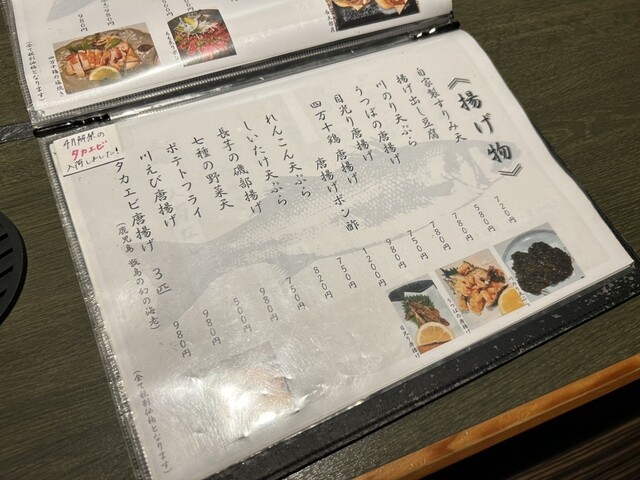 980円
980円
四万十鶏の塩抜き
(全て税別価格となります)
《揚げ物》
自家製すりみ天 720円
揚げ出し豆腐 580円
川のり天ぷら 780円
うつぼの唐揚げ 780円
目光り唐揚げ 750円
四万十鶏 唐揚げ 980円
唐揚げポン酢 1200円
れんこん天ぷら 750円
しいたけ天ぷら 820円
長芋の磯部揚げ 750円
七種の野菜天 980円
ポテトフライ 500円
川えび唐揚げ 980円
タカエビ唐揚げ 3匹 980円
(鹿児島 甑島の幻の海老)
(全て税別価格となります)
タカエビ
入荷しました!
うつぼの唐揚げ
目光り唐揚げ